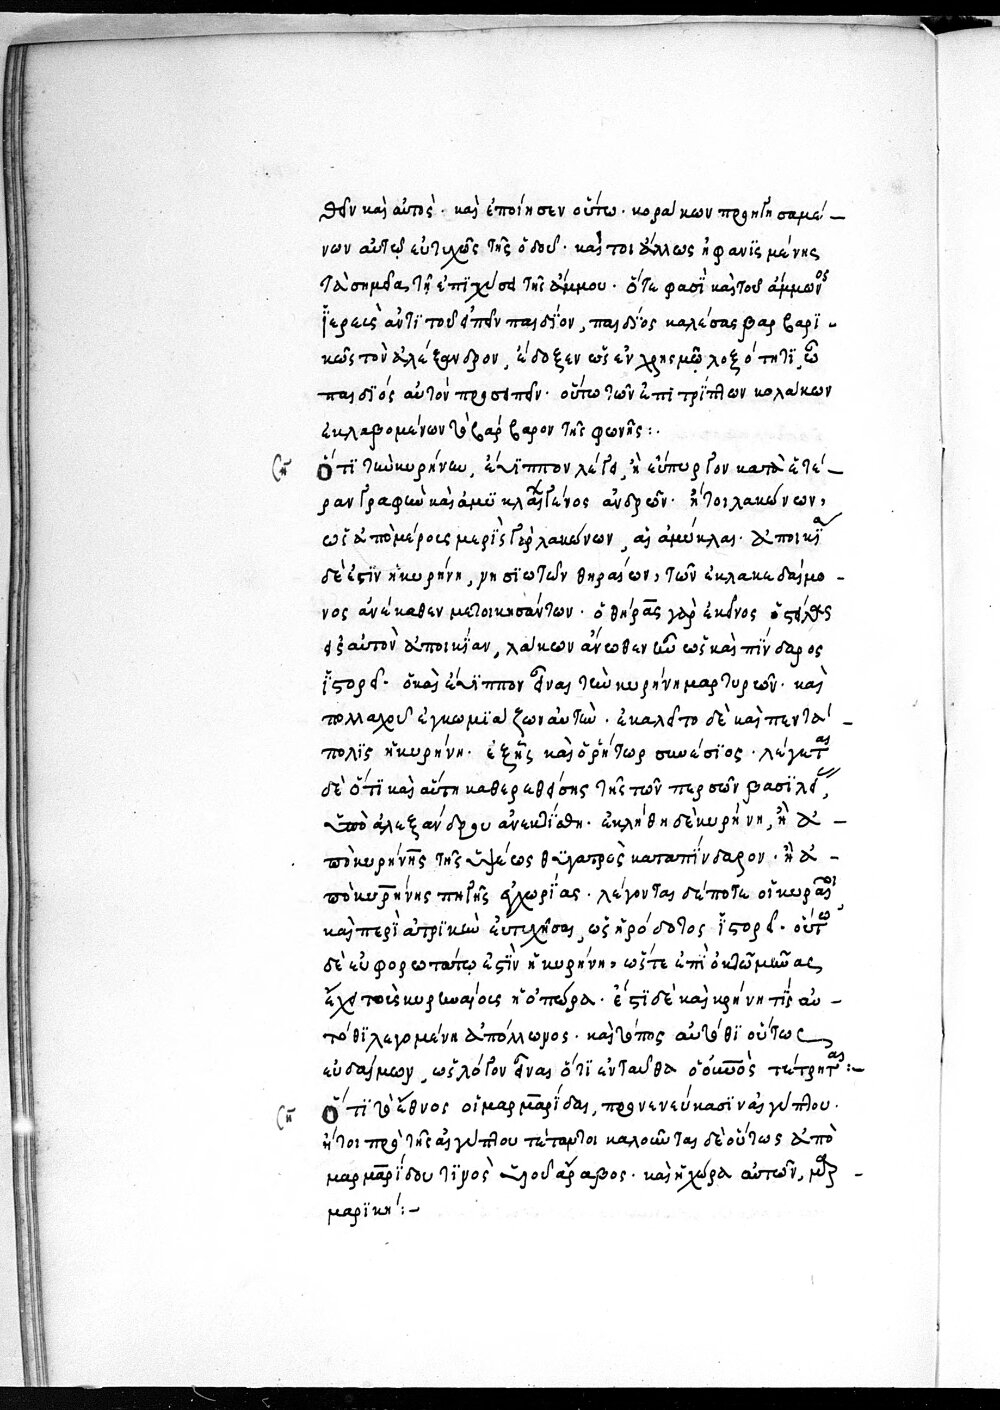 θεῖν καὶ αὐτὸς· καὶ ἐποίησεν οὕτω· κοράκων προηγησαμέ-
νων αὐτῷ εὐτυχῶς τῆς ὁδοῦ· καί τοι ἄλλως ἠφανισμένης
τὰ σημεῖα τῇ ἐπιχύσει τῆς ἄμμου· ὅτε φασὶ καὶ τοῦ ἄμμωνος
ἱερεὺς ἀντὶ τοῦ εἰπεῖν παιδίον, παιδίος καλέσας βαρβαρι-
κῶς τὸν ἀλέξανδρον, ἔδοξεν ὡς ἐν χρησμῷ λοξότητι, ὦ
παιδιός αὐτὸν προσειπεῖν· οὕτω τῶν ἐπιτρίπτων κολάκων
ἐκλαβομένων τὸ βάρβαρον τῆς φωνῆς:·
Ση Ὅτι τὴν κυρήνην, εὔιππον λέγει, ἢ εὔπυργον κατὰ ἑτέ-
ραν γραφὴν καὶ ἀμυκλαῖον γένος ἀνδρῶν· ἤτοι λακώνων,
ὡς ἀπὸ μέρους μερὶς γὰρ λακώνων, αἱ ἀμύκλαι· ἀποικία
δέ ἐστιν ἡ κυρήνη, νησιωτῶν θηραίων, τῶν ἐκ λακεδαίμο-
νος ἀνέκαθεν μετοικησάντων· ὁ θήρας γὰρ ἐκεῖνος ὁ στείλας
εἰς αὐτὸν ἀποικίαν, λάκων ἄνωθεν ἦν ὡς καὶ πίνδαρος
ἱστορεῖ· ὁ καὶ εὔιππον εἶναι τὴν κυρήνην μαρτυρῶν· καὶ
πολλαχοῦ ἐγκωμιάζων αὐτὴν· ἐκαλεῖτο δὲ καὶ πεντά-
πολις ἡ κυρήνη· ἐξ ἧς καὶ ὁ ῥήτωρ συνέσιος· λέγεται
δὲ ὅτι καὶ αὕτη καθαιρεθεῖσης τῆς τῶν περσῶν βασιλείας,
ὑπὸ ἀλεξάνδρου ἀνεκλίθη· ἐκλήθη δὲ κυρήνη, ἢ ἀ-
πὸ κυρήνης τῆς ὑψέως θυγατρὸς κατὰ πίνδαρον· ἢ ἀ-
πὸ κυρήνης πηγῆς ἐγχωρίας· λέγονται δέ ποτε οἱ κυρηναῖοι,
καὶ περὶ ἰατρικὴν εὐτυχῆσαι, ὡς ἡρόδοτος ἱστορεῖ· οὕτω
δὲ εὐφορωτάτῳ ἐστὶν ἡ κυρήνη, ὥστε ἐπὶ ὀκτὼ μῆνας,
ἔχει τοὺς κυρηναίους ἡ ὀπώρα· ἔστι δὲ καὶ κρήνη τίς αὐ-
τόθι λεγομένη ἀπόλλωνος· καὶ τόπος αὐτόθι οὕτως
εὐδαίμων, ὡς λόγον εἶναι ὅτι ἐνταῦθα ὁ οὐρανὸς τέτρηται:-
Ση Ὅτι τὸ ἔθνος οἱ μαρμαρίδαι, προνενεύκασιν αἰγύπτου·
ἤτοι πρὸ τῆς αἰγύπτου τέτανται καλοῦνται δὲ οὕτως ἀπὸ
μαρμαρίδου τινὸς υἱοῦ ἄραβος· καὶ ἡ χώρα αὐτῶν, μαρ-
μαρική:-